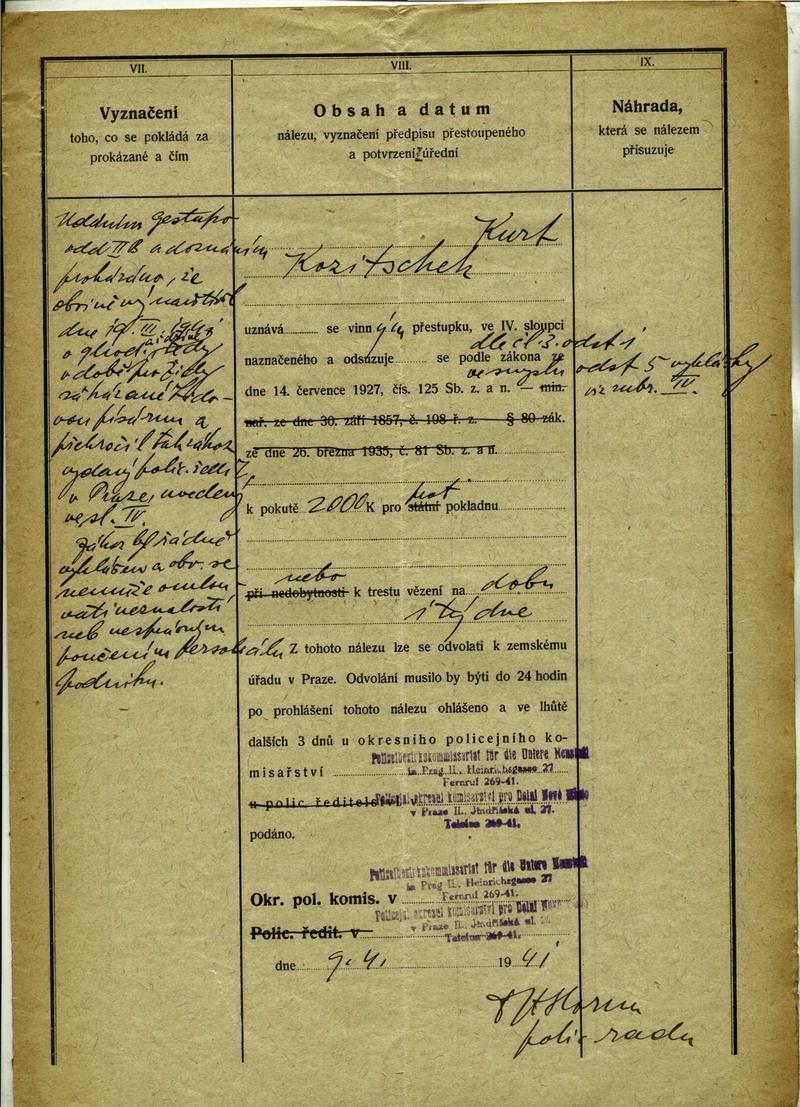 VII.
VIII.
IX.
Vyznačení
toho, co se pokládá za
prokázané a čím
Obsah a datum
nálezu, vyznačení předpisu přestoupeného
a potvrzení úřední
Náhrada,
která se nálezem
přisuzuje
Udáním Gestapo
odd II B a doznáním
prokázáno, že
obviněný navštívil
dne 19. III. 1941
v době pro židy
zakázané
a
překročil tak zákaz
vydaný polic. ředit.
v Praze, uvedený
ve sl. IV.
Zákaz byl řádně
vyhlášen a obv. se
nemůže omlou-
vati neznalostí
neb nesprávným
poučením personálu
podniku.
Kurt
Kozitschek
uznává se vinným přestupku, ve IV. sloupci
dle čl. 3. odst 1
naznačeného a odsuzuje se podle zákona ze
ve smyslu odst 5 vyhlášky
dne 14. července 1927, čís. 125 Sb. z. a n. — min.
viz rubr. IV.
nař. ze dne 30. září 1857, č. 198 ř. z. — § 80 zák.
ze dne 26. března 1935, č. 81 Sb. z. a n.
k pokutě 2000 K pro státní pokladnu
nebo
při nedobytnosti k trestu vězení na dobu
týdne
Z tohoto nálezu lze se odvolati k zemskému
úřadu v Praze. Odvolání musilo by býti do 24 hodin
po prohlášení tohoto nálezu ohlášeno a ve lhůtě
dalších 3 dnů u okresního policejního ko-
misařství
Polizeibezirkskommissariat für die Untere Neustadt
in Prag II., Heinrichsgasse 27
Fernruf 269-41.
u polic. ředitelství v
Policejní okresní komisařství pro Dolní Nové Město
v Praze II., Jindřišská ul. 27.
Telefon 269-41.
podáno.
Polizeibezirkskommissariat für die Untere Neustadt
in Prag II., Heinrichsgasse 27
Fernruf 269-41.
Okr. pol. komis. v
Policejní okresní komisařství pro Dolní Nové
v Praze II., Jindřišská ul. 27
Telefon 269-41.
Polic. ředit. v
dne 9. 4. 1941
polic. rada